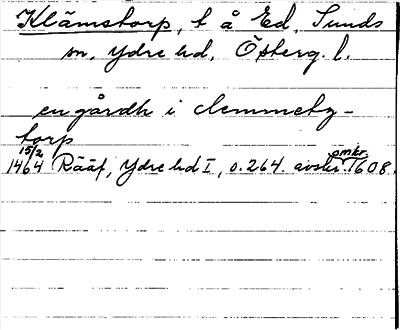 Klämstorp, t å Ed, Sunds
sn, Ydre hd, Österg. l.
en gårdh i clemmetz-
torp
15/2 1464 Rääf, Ydre hd I, s. 264. avskr. omkr. 1608.